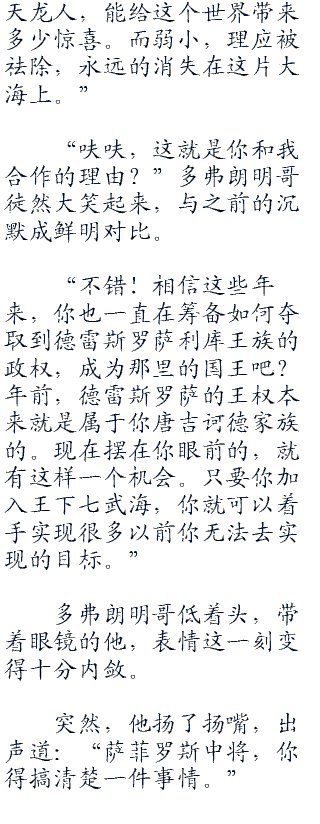 天龙人，能给这个世界带来
多少惊喜。而弱小，理应被
祛除，永远的消失在这片大
海上。”
“呋呋，这就是你和我
合作的理由？”多弗朗明哥
徒然大笑起来，与之前的沉
默成鲜明对比。
“不错！相信这些年
来，你也一直在筹备如何夺
取到德雷斯罗萨利库王族的
政权，成为那里的国王吧？
年前，德雷斯罗萨的王权本
来就是属于你唐吉诃德家族
的。现在摆在你眼前的，就
有这样一个机会。只要你加
入王下七武海，你就可以着
手实现很多以前你无法去实
现的目标。”
多弗朗明哥低着头，带
着眼镜的他，表情这一刻变
得十分内敛。
突然，他扬了扬嘴，出
声道：“萨菲罗斯中将，你
得搞清楚一件事情。”